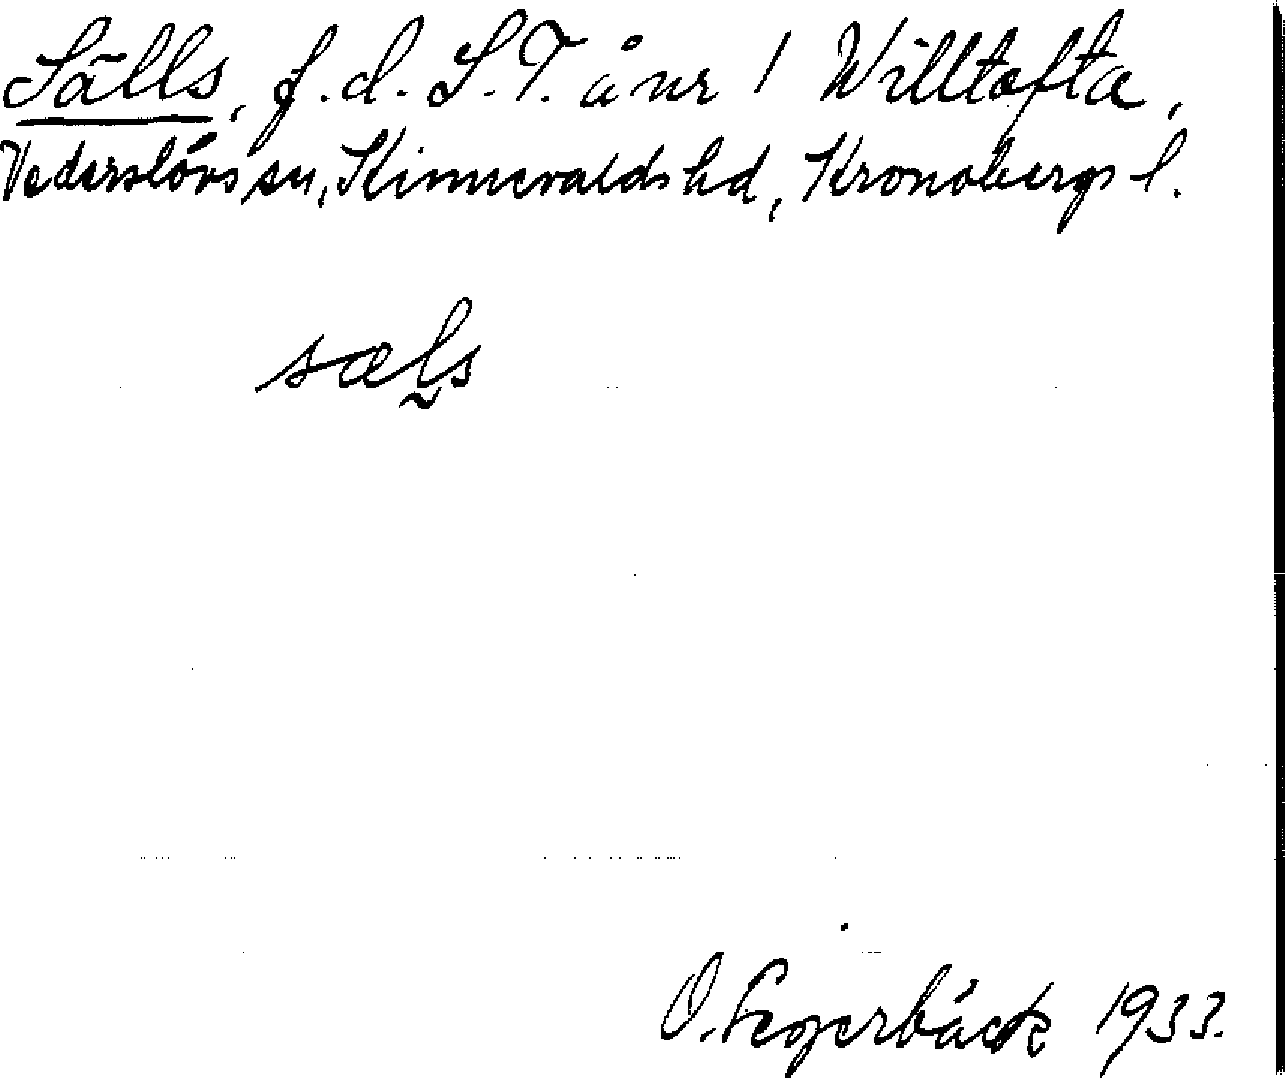 Sälls, f.d. S.T. å nr 1 Willtofta,
Vederslövs sn, Kinnevalds hd, Kronobergs l.
sæl̰s
O. Segerbäck 1933.